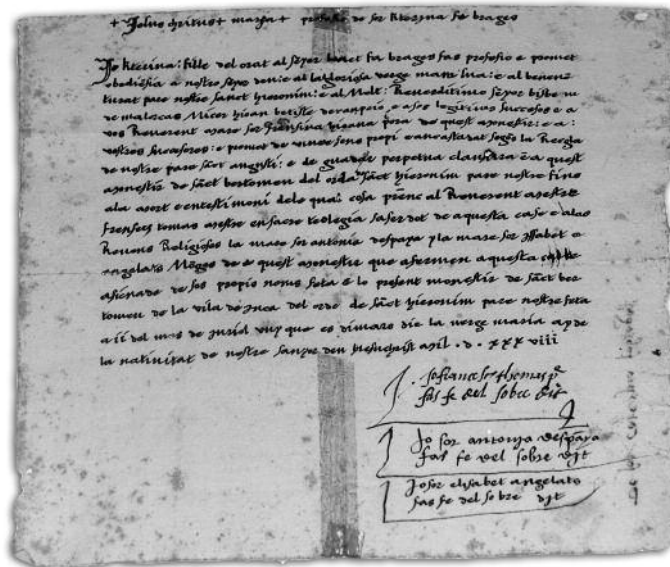 + Jesus christus + maria + profesio de sor Katerina fabrages
Jo Katerina: fille del onrat al senyor benet fabrages fas profesio e promet
obediensia a nostro senyor deu: e a la gloriosa verge mare sua: e al benentu
turat pare nostro sanct hieronim: e al Molt Reverendisimo senyor bisbe
de malorcas Micer batiste de campeio, e a sos legitims succesos e a
vos Reverent mare sor priora de quest monestir: e a:
vostros sucesoros: e promet de viure sens propi e en castedat segons la Regla
de nostro pare sanct agusti: e de guardar perpetua clausura en a quest
monestir de sanct bertomeu del orda sanct hieronim pare nostro fins
a la mort e en testimoni de lo qual cosa prenc al Reverent mestre
fransesc tomas mestre en sacre teologia saserdot de aquesta casa e a las
Religiosas la mare sor antonia despara y la mare sor elisabet
angelats Monges de a quest monestir que afermen aquesta
de sos propis noms feta en lo present monestir de sanct ber
tomeu de la vila de inca del orde de sanct hieronim pare nostro feta
a ii del mes de juriol any que es dimars die la verge maria any de
la nativitat de nostro senyor deu hiesuchrist mil . d . xxx viii
Jo francesc thomas pre
fas fe del sobre dit
Jo sor antonia despara
fas fe del sobre dit
Jo sor elisabet angelats
fas fe del sobre dit